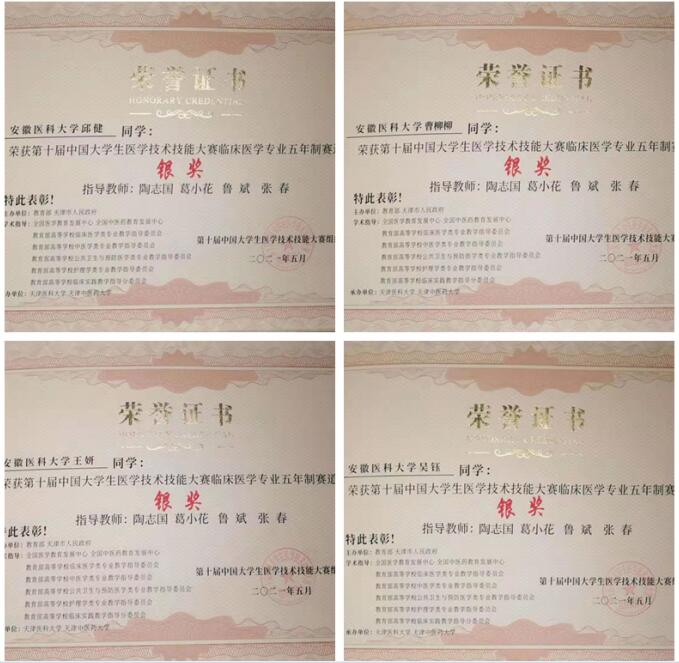 荣誉证书
HONORARY CREDENTIAL
安徽医科大学邱健 同学：
荣获第十届中国大学生医学技术技能大赛临床医学专业五年制赛道
银奖
指导教师：陶志国 葛小花 鲁斌 张春
特此表彰！
主办单位：教育部 天津市人民政府
学术指导：全国医学教育发展中心 全国中医药教育发展中心
教育部高等学校临床医学类专业教学指导委员会
教育部高等学校中医学类专业教学指导委员会
教育部高等学校公共卫生与预防医学类专业教学指导委员会
教育部高等学校护理学类专业教学指导委员会
教育部高等学校临床实践教学指导分委员会
承办单位：天津医科大学 天津中医药大学
第十届中国大学生医学技术技能大赛组
二〇二一年五月
荣誉证书
安徽医科大学曹柳柳 同学：
荣获第十届中国大学生医学技术技能大赛临床医学专业五年制赛
银奖
指导教师：陶志国 葛小花 鲁斌 张春
特此表彰！
主办单位：教育部 天津市人民政府
学术指导：全国医学教育发展中心 全国中医药教育发展中心
教育部高等学校临床医学类专业教学指导委员会
教育部高等学校中医学类专业教学指导委员会
教育部高等学校公共卫生与预防医学类专业教学指导委员会
教育部高等学校护理学类专业教学指导委员会
教育部高等学校临床实践教学指导分委员会
承办单位：天津医科大学 天津中医药大学
第十届中国大学生医学技术技能大赛
二〇二一年五月
荣誉证书
安徽医科大学王妍 同学：
荣获第十届中国大学生医学技术技能大赛临床医学专业五年制赛道
银奖
指导教师：陶志国 葛小花 鲁斌 张春
此表彰！
办单位：教育部 天津市人民政府
术指导：全国医学教育发展中心 全国中医药教育发展中心
教育部高等学校临床医学类专业教学指导委员会
教育部高等学校中医学类专业教学指导委员会
教育部高等学校公共卫生与预防医学类专业教学指导委员会
教育部高等学校护理学类专业教学指导委员会
教育部高等学校临床实践教学指导分委员会
办单位：天津医科大学 天津中医药大学
第十届中国大学生医学技术技能大赛组
二〇二一年五月
荣誉证书
安徽医科大学吴钰 同学：
荣获第十届中国大学生医学技术技能大赛临床医学专业五年制赛
银奖
指导教师：陶志国 葛小花 鲁斌 张春
特此表彰！
主办单位：教育部 天津市人民政府
学术指导：全国医学教育发展中心 全国中医药教育发展中心
教育部高等学校临床医学类专业教学指导委员会
教育部高等学校中医学类专业教学指导委员会
教育部高等学校公共卫生与预防医学类专业教学指导委员会
教育部高等学校护理学类专业教学指导委员会
教育部高等学校临床实践教学指导分委员会
承办单位：天津医科大学 天津中医药大学
第十届中国大学生医学技术技能大赛
二〇二一年五月